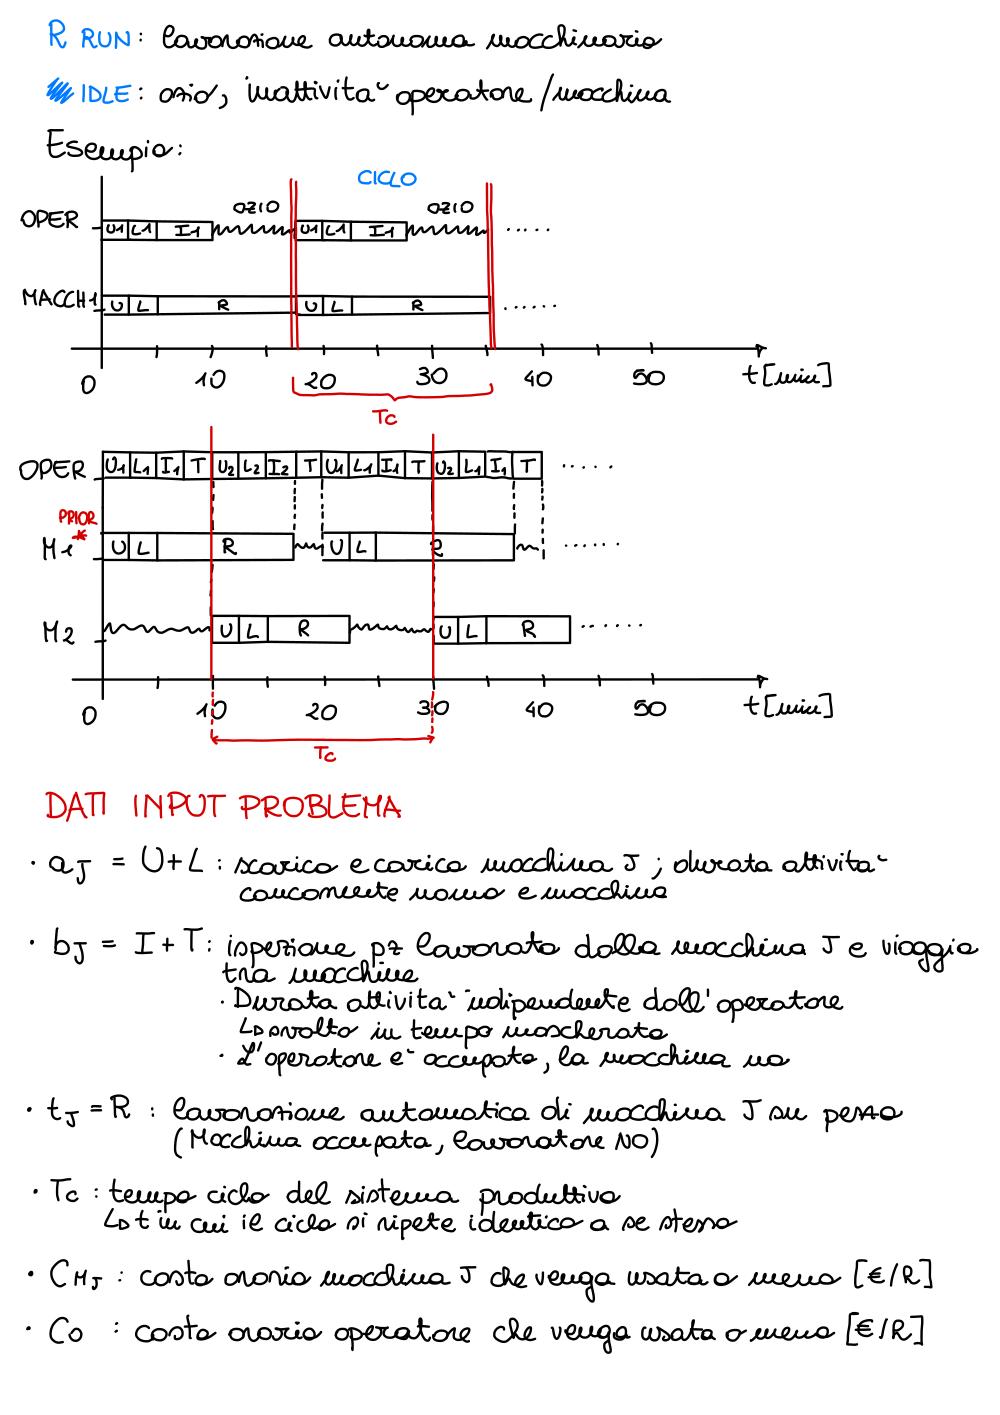 R RUN: lavorazione autonoma macchinario
IDLE: ozio, inattività operatore/macchina
Esempio:
CICLO
OZIO OZIO
OPER U1 L1 I1 U1 L1 I1 .....
MACCH1 U L R U L R ......
0 10 20 30 40 50 t[min]
Tc
OPER U1 L1 I1 T U2 L2 I2 T U1 L1 I1 T U2 L1 I1 T .....
PRIOR
*
M1 U L R U L R ......
M2 U L R U L R ......
0 10 20 30 40 50 t[min]
Tc
DATI INPUT PROBLEMA
· aJ = U+L : scarico e carico macchina J ; durata attività
concomente uomo e macchina
· bJ = I+T: ispezione pz lavorato dalla macchina J e viaggio
tra macchine
· Durata attività indipendente dall'operatore
↳ svolto in tempo mascherato
· L'operatore è occupato, la macchina no
· tJ = R : lavorazione automatica di macchina J su pezzo
(Macchina occupata, lavoratore NO)
· Tc : tempo ciclo del sistema produttivo
↳ t in cui il ciclo si ripete identico a se stesso
· CMJ : costo orario macchina J che venga usata o meno [€/R]
· Co : costo orario operatore che venga usata o meno [€/R]